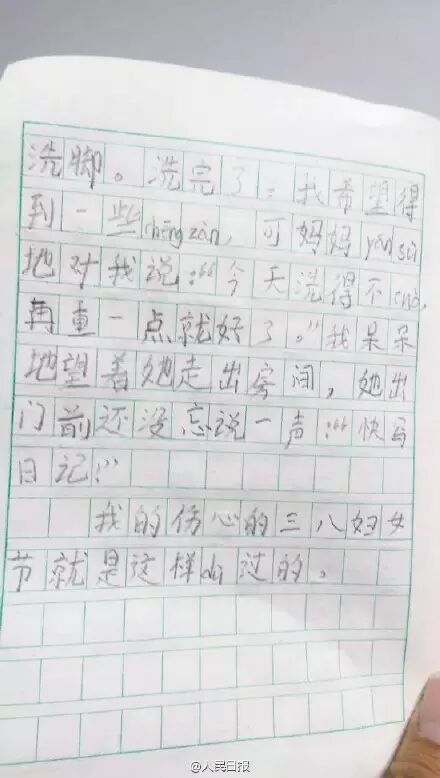 洗脚。洗完了,我希望得
到一些chēng zàn,可妈妈yán sù
地对我说:“今天洗得不cuò,
再重一点就好了。”我呆呆
地望着她走出房间,她出
门前还没忘说一声:“快写
日记!”
我的伤心的三八妇女
节就是这样dù过的。
@人民日报